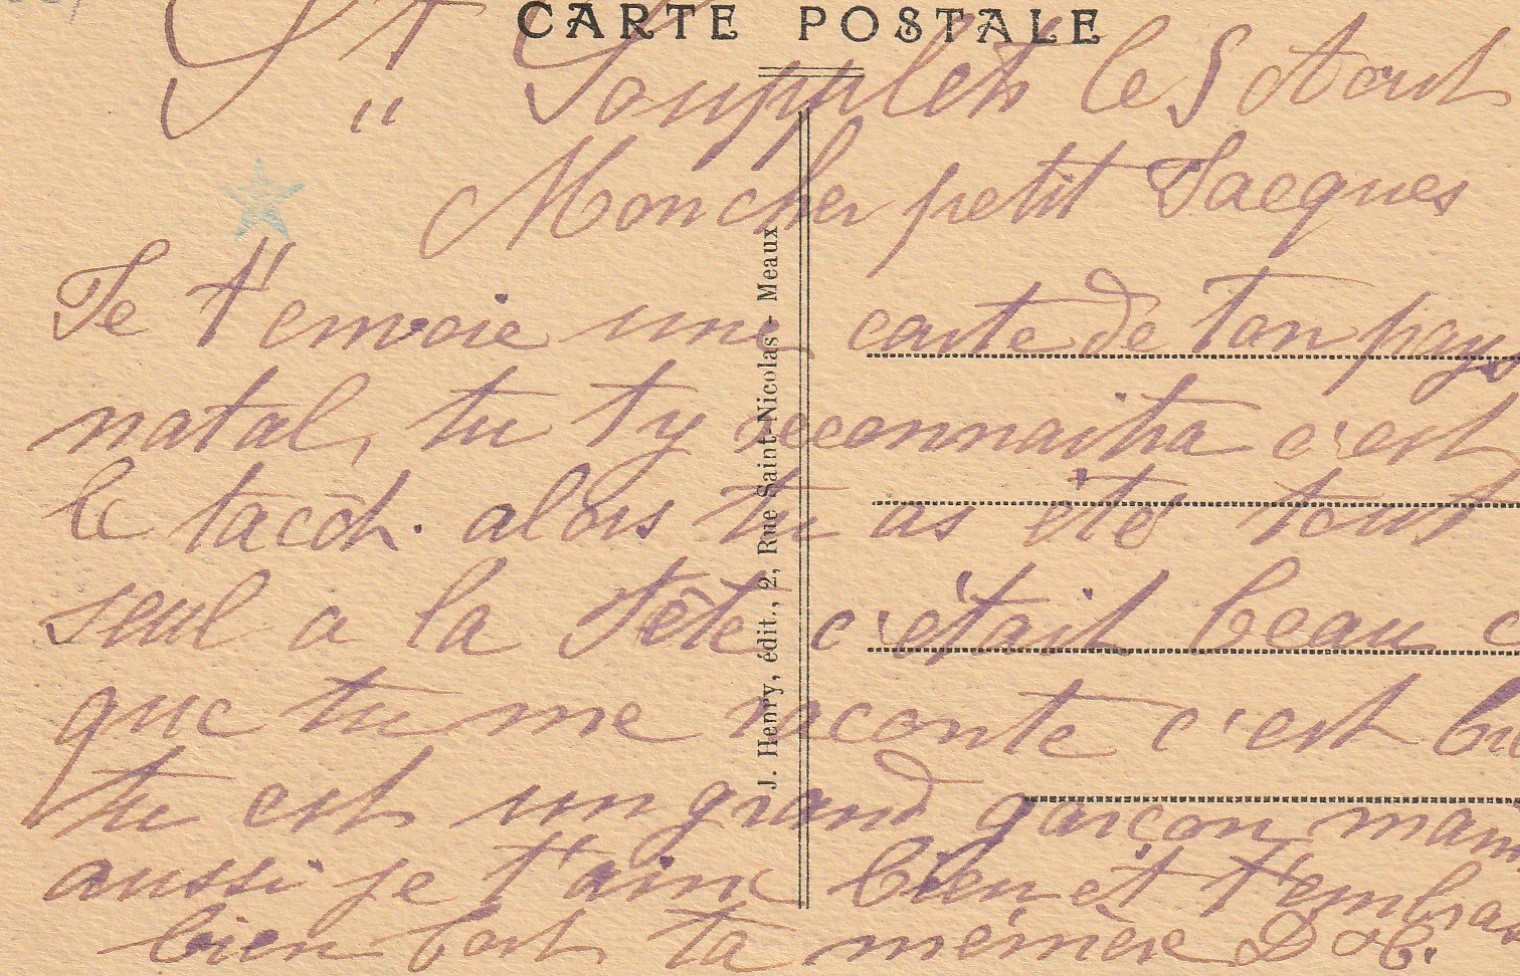 CARTE POSTALE
St Soupplets le 5 Aout
Mon cher petit Jacques
Je t'envoie une carte de ton pays
natal, tu t'y reconnaitra c'est
le tacot. alors tu as étés tout
seul a la fête c'était beau c
que tu me raconte c'est bie
tu est un grand garçon mam
aussi je t'aime bien et t'embras
bien fort ta mémère
J. Henry, édit., 2, Rue Saint-Nicolas - Meaux